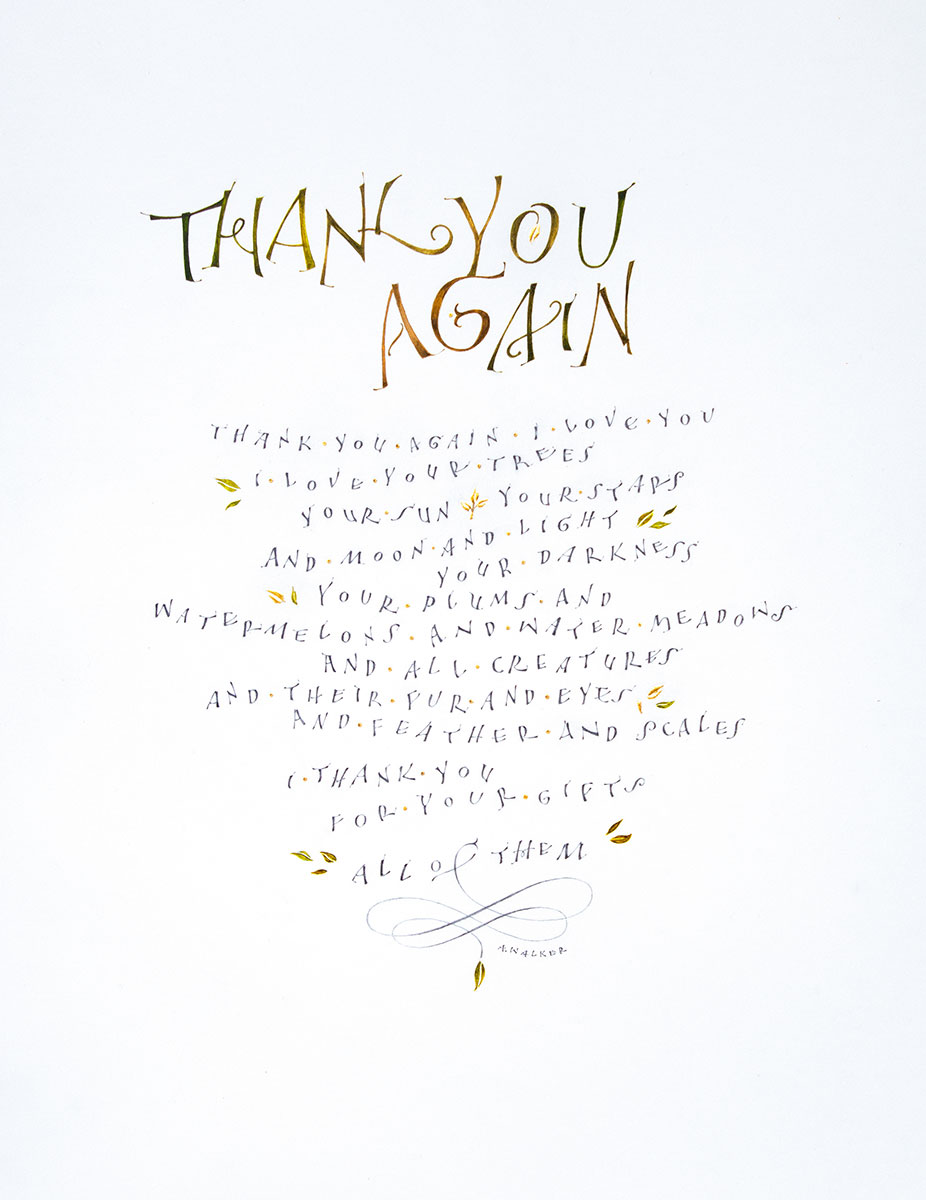 THANK YOU
AGAIN
THANK·YOU·AGAIN·I·LOVE·YOU
I·LOVE·YOUR·TREES
YOUR·SUN YOUR·STARS
AND·MOON·AND·LIGHT
YOUR·DARKNESS
YOUR·PLUMS·AND
WATERMELONS·AND·WATER·MEADOWS
AND·ALL·CREATURES
AND·THEIR·FUR·AND·EYES
AND·FEATHER·AND SCALES
I·THANK·YOU
FOR·YOUR·GIFTS
ALL OF THEM
A.WALKER